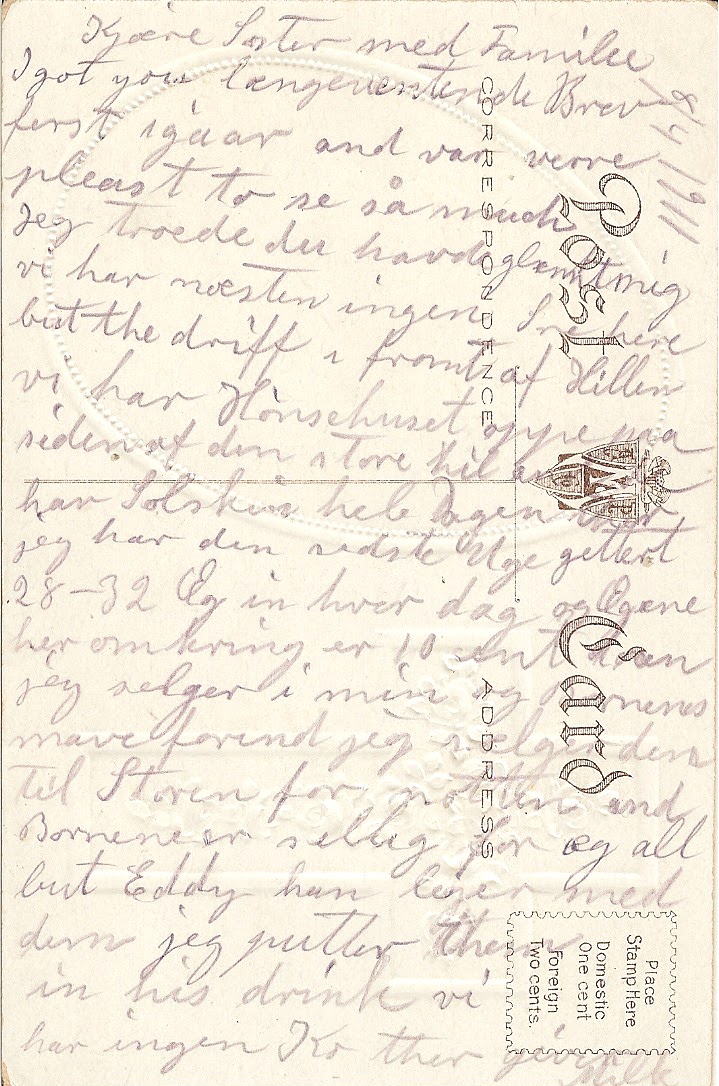 Kjære Søster med Familie
8/4 1911
I got your længeventende Brev
først igaar and var verre
pleast to se så much
jeg troede du havde glemt mig
vi har næsten ingen Sne here
but the driff i front af Hillen
vi har Hönsehuset oppe paa
siden af den store hil
har Solskin hele Dagen
jeg har den sidste Uge gettert
28-32 Eg in hver dag og Egene
her omkring er 10 cent
jeg selger i min og Bornenes
mave forend jeg selger dem
til Storen for notten and
Bornene er sellig for eg all
but Eddy han leger med
dem jeg putter them
in his drink vi
har ingen Ko ther giver
Milk
Post Card
CORRESPONDENCE
ADDRESS
Place
Stamp Here
Domestic
One cent
Foreign
Two cents.